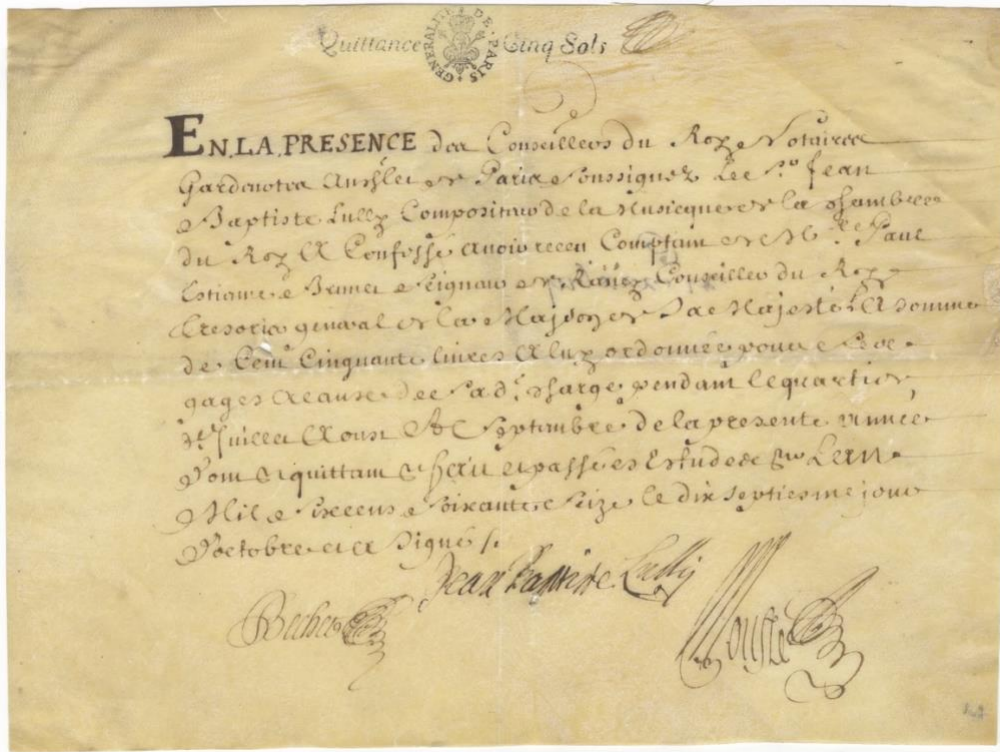 Quittance GENERALITÉ DE PARIS Cinq Sols
EN LA PRESENCE des Conseillers du Roy Notaires
Gardenotes au Chlet de Paris soussignez le Sr. Jean
Baptiste Lully Compositeur de la Musicque de la Chambre
du Roy A Confessé avoir receu Comptant de Paul
Conseiller du Roy
Tresorier general de la Maison de Sa Majesté LA somme
de Cent Cinquante livres A luy ordonnée pour ses
gages a cause de sad. charge pendant le quartier
de Juillet Aoust & Septembre de la presente année
Dont quittant &c. faict et passé es Estudes Lan
Mil Six cens Soixante Seize le dix septiesme jour
Doctobre et a signé /.
Jean Baptiste Lully